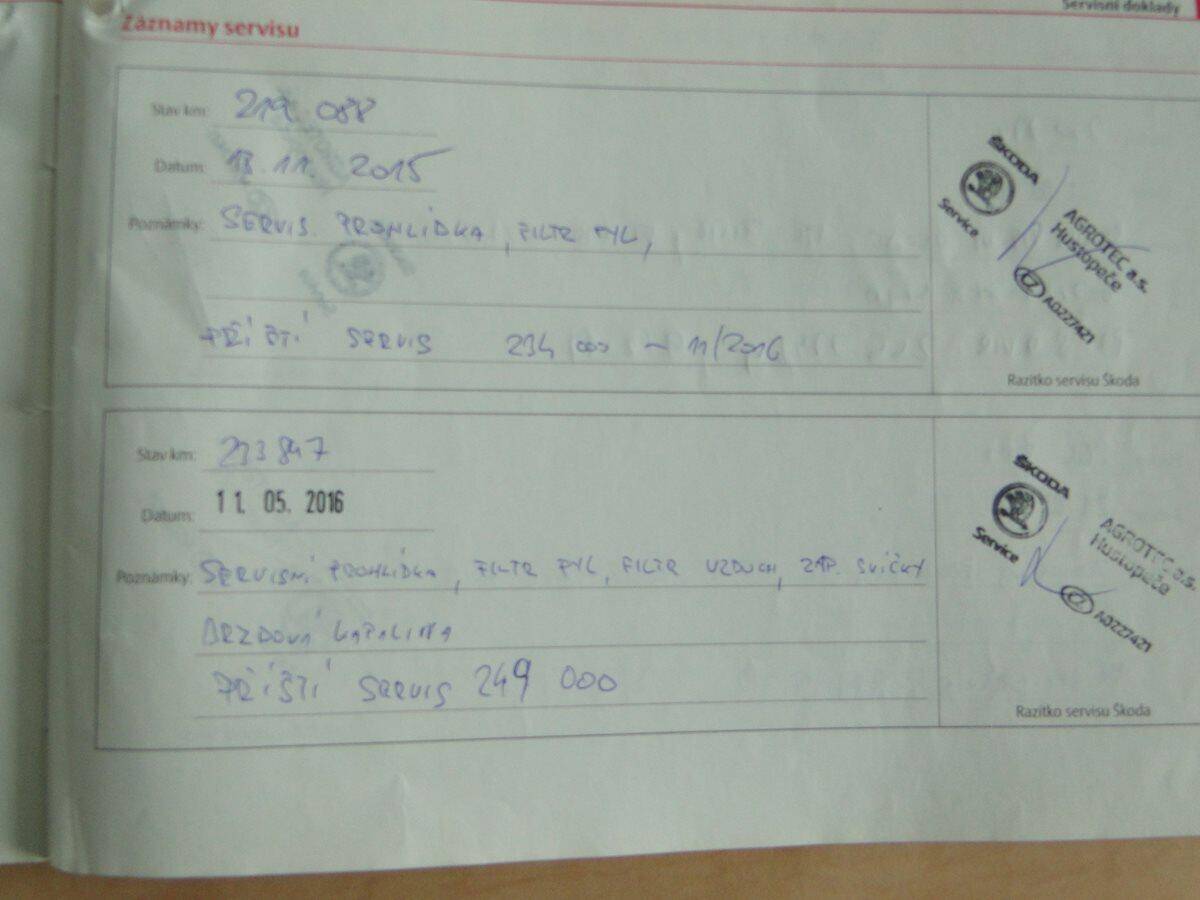 Servisní doklady
Záznamy servisu
Stav km: 219 088
Datum: 11. 2015
Poznámky: SERVIS. PROHLÍDKA, FILTR PYL,
PŘÍŠTÍ SERVIS 234 000 ~ 11/2016
ŠKODA
Service
AGROTEC a.s.
Hustopeče
CZ A0227421
Razítko servisu Škoda
Stav km: 233 847
Datum: 11. 05. 2016
Poznámky: SERVISNÍ PROHLÍDKA, FILTR PYL, FILTR VZDUCH, ZAP. SVÍČKY
BRZDOVÁ KAPALINA
PŘÍŠTÍ SERVIS 249 000
ŠKODA
Service
AGROTEC a.s.
Hustopeče
CZ A0227421
Razítko servisu Škoda